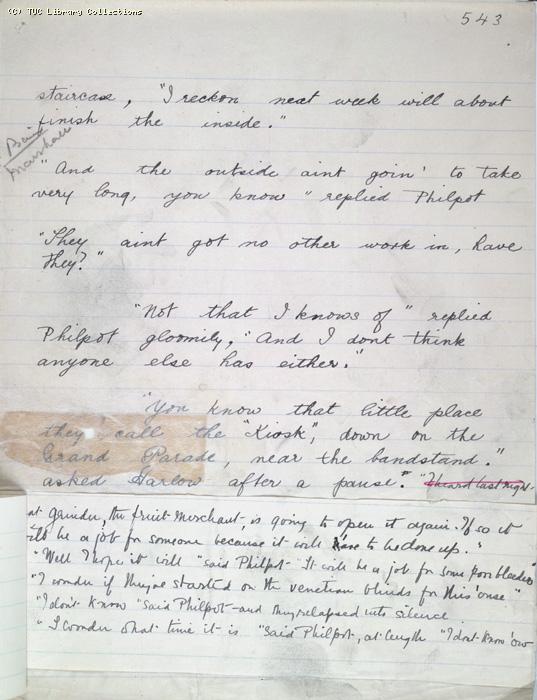 (C) TUC Library Collections
543
staircase, "I reckon next week will about
finish the inside."
"And the outside aint goin' to take
very long, you know" replied Philpot
"They aint got no other work in, have
they?"
"Not that I knows of" replied
Philpot gloomily, "And I dont think
anyone else has either."
"You know that little place
they call the "Kiosk", down on the
Grand Parade, near the bandstand."
asked Harlow after a pause." "I heard last night
at grinder, the fruit-merchant, is going to open it again. If so it
'll be a job for someone because it will have to be done up."
"Well I hope it will" said Philpot "It will be a job for some poor bleeders"
"I wonder if they've started on the venetian blinds for this 'ouse"
"I don't know" said Philpot - and they relapsed into silence.
"I wonder what time it is" said Philpot, at length "I dont know 'ow